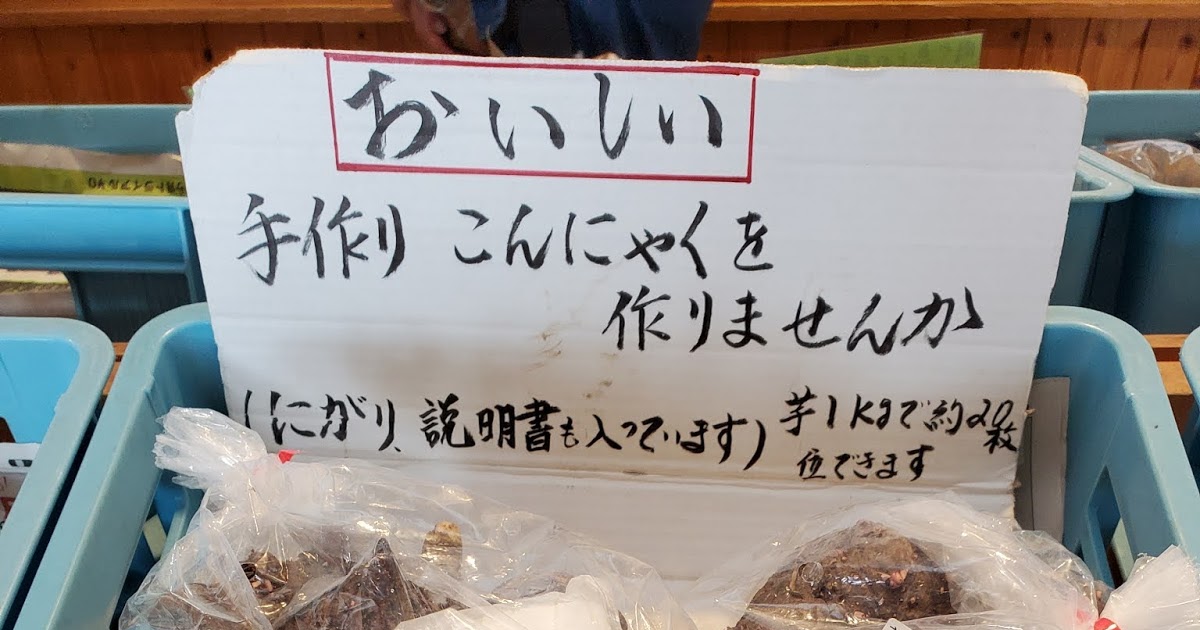 おいしい
手作りこんにゃくを
作りませんか
(にがり、説明書も入っています)
芋1Kgで約20枚
位できます